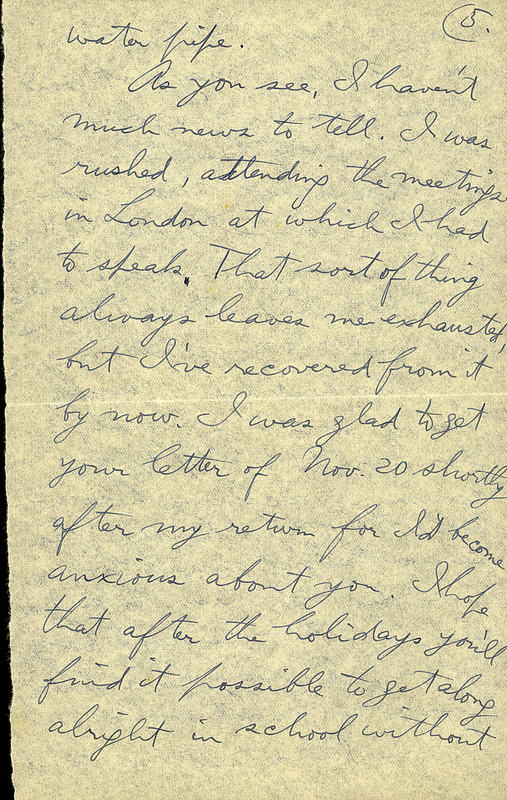 5.
water pipe.
As you see, I haven't
much news to tell. I was
rushed, attending the meetings
in London at which I had
to speak. That sort of thing
always leaves me exhausted,
but I've recovered from it
by now. I was glad to get
your letter of Nov. 20 shortly
after my return for I'd become
anxious about you. I hope
that after the holidays you'll
find it possible to get along
alright in school without